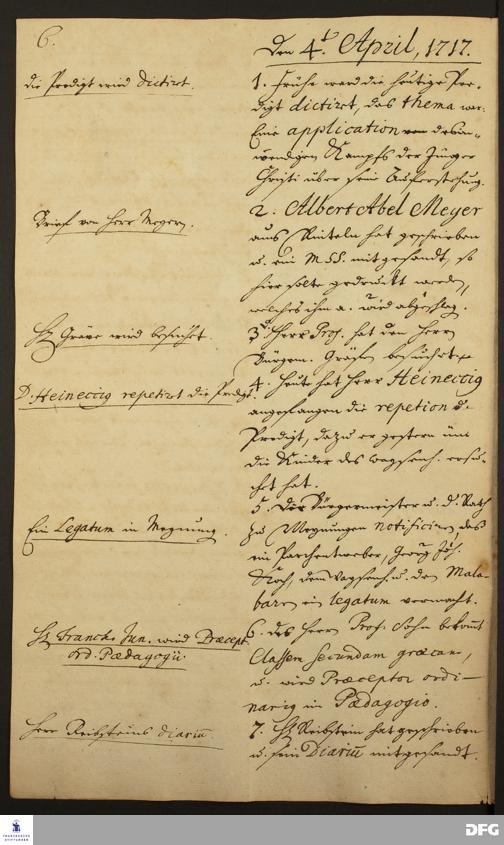 6.
Den 4t. April, 1717.
die Predigt wird dictiret.
1. Frühe ward die heutige Pre-
digt dictiret, das thema war:
Eine application von dem in-
wendigen Kampf der Jünger
Christi über seine Auferstehung.
Brief von Herr Meyern.
2. Albert Abel Meyer
aus Rinteln hat geschrieben
u. ein MSS. mitgesandt, so
hier solte gedruckt werden,
welches ihm a. wird abgeschlag.
H. Gräve wird besuchet.
3. Herr Prof. hat den Herrn
Bürgem. Gräfen besuchet.
D. Heineccig repetiret die Predigt.
4. Heute hat Herr Heineccig
angefangen die repetion d.
Predigt, dazu er gestern um
die Kinder des Waysenh. ersu-
chet hat.
Ein Legatum in Meynung.
5. Der Bürgermeister u. d. Rath
zu Meynungen notificiren, das
ein Parchentweber, Georg Joh.
Koch, dem Waysenh. u. den Mala-
baren ein legatum vermacht.
H. Franck. Jun. wird Præcept.
ord. Pædagogii.
6. des Herrn Prof. Sohn bekomt
Classem secundam græcam,
u. wird Præceptor ordi-
narig in Pædagogio.
Herr Reibsteins diariu.
7. H. Reibstein hat geschrieben
u. sein Diariu mitgesandt.
FRANCKESCHE STIFTUNGEN
DFG